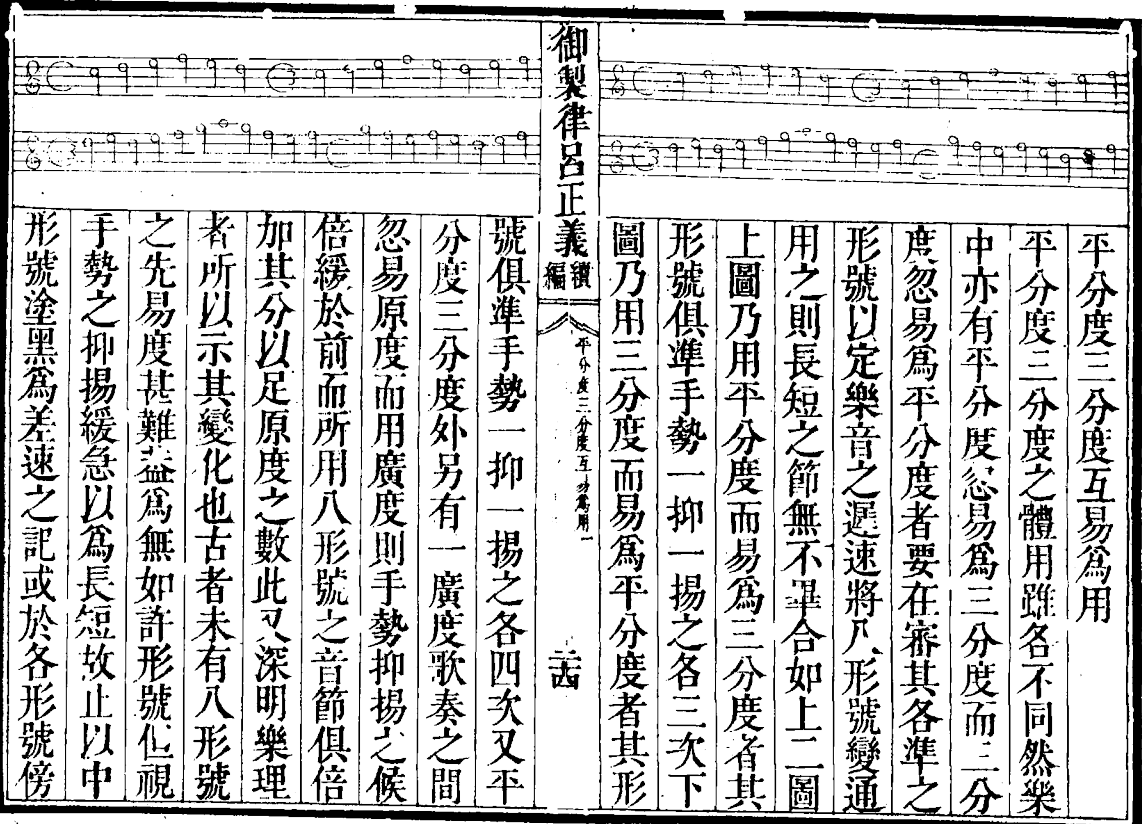 平分度三分度互易爲用
平分度三分度之體用雖各不同然樂
中亦有平分度忽易爲三分度而三分
度忽易爲平分度者要在審其各準之
形號以定樂音之遲速將八形號變通
用之則長短之節無不畢合如上二圖
上圖乃用平分度而易爲三分度者其
形號俱準手勢一抑一揚之各三次下
圖乃用三分度而易爲平分度者其形
御製律呂正義
續編
平分度三分度互易爲用
二十四
號俱準手勢一抑一揚之各四次又平
分度三分度外另有一廣度歌奏之間
忽易原度而用廣度則手勢抑揚之候
倍緩於前而所用八形號之音節俱倍
加其分以足原度之數此又深明樂理
者所以示其變化也古者未有八形號
之先易度甚難益爲無如許形號但視
手勢之抑揚緩急以爲長短故止以中
形號塗黑爲差速之記或於各形號傍